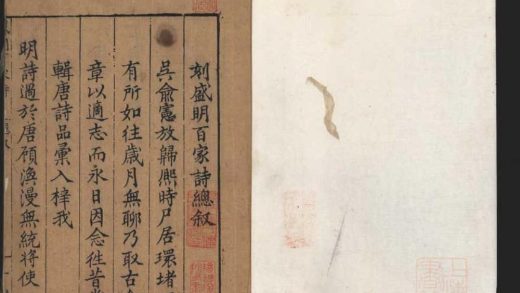 刻盛明百家詩總叙
吳俞憲放歸熙時尸居環堵
有所如往歲月無聊乃取古
章以適志而永日因念徃昔
輯唐詩品彙入梓我
明詩過於唐顧渙漫無統將使